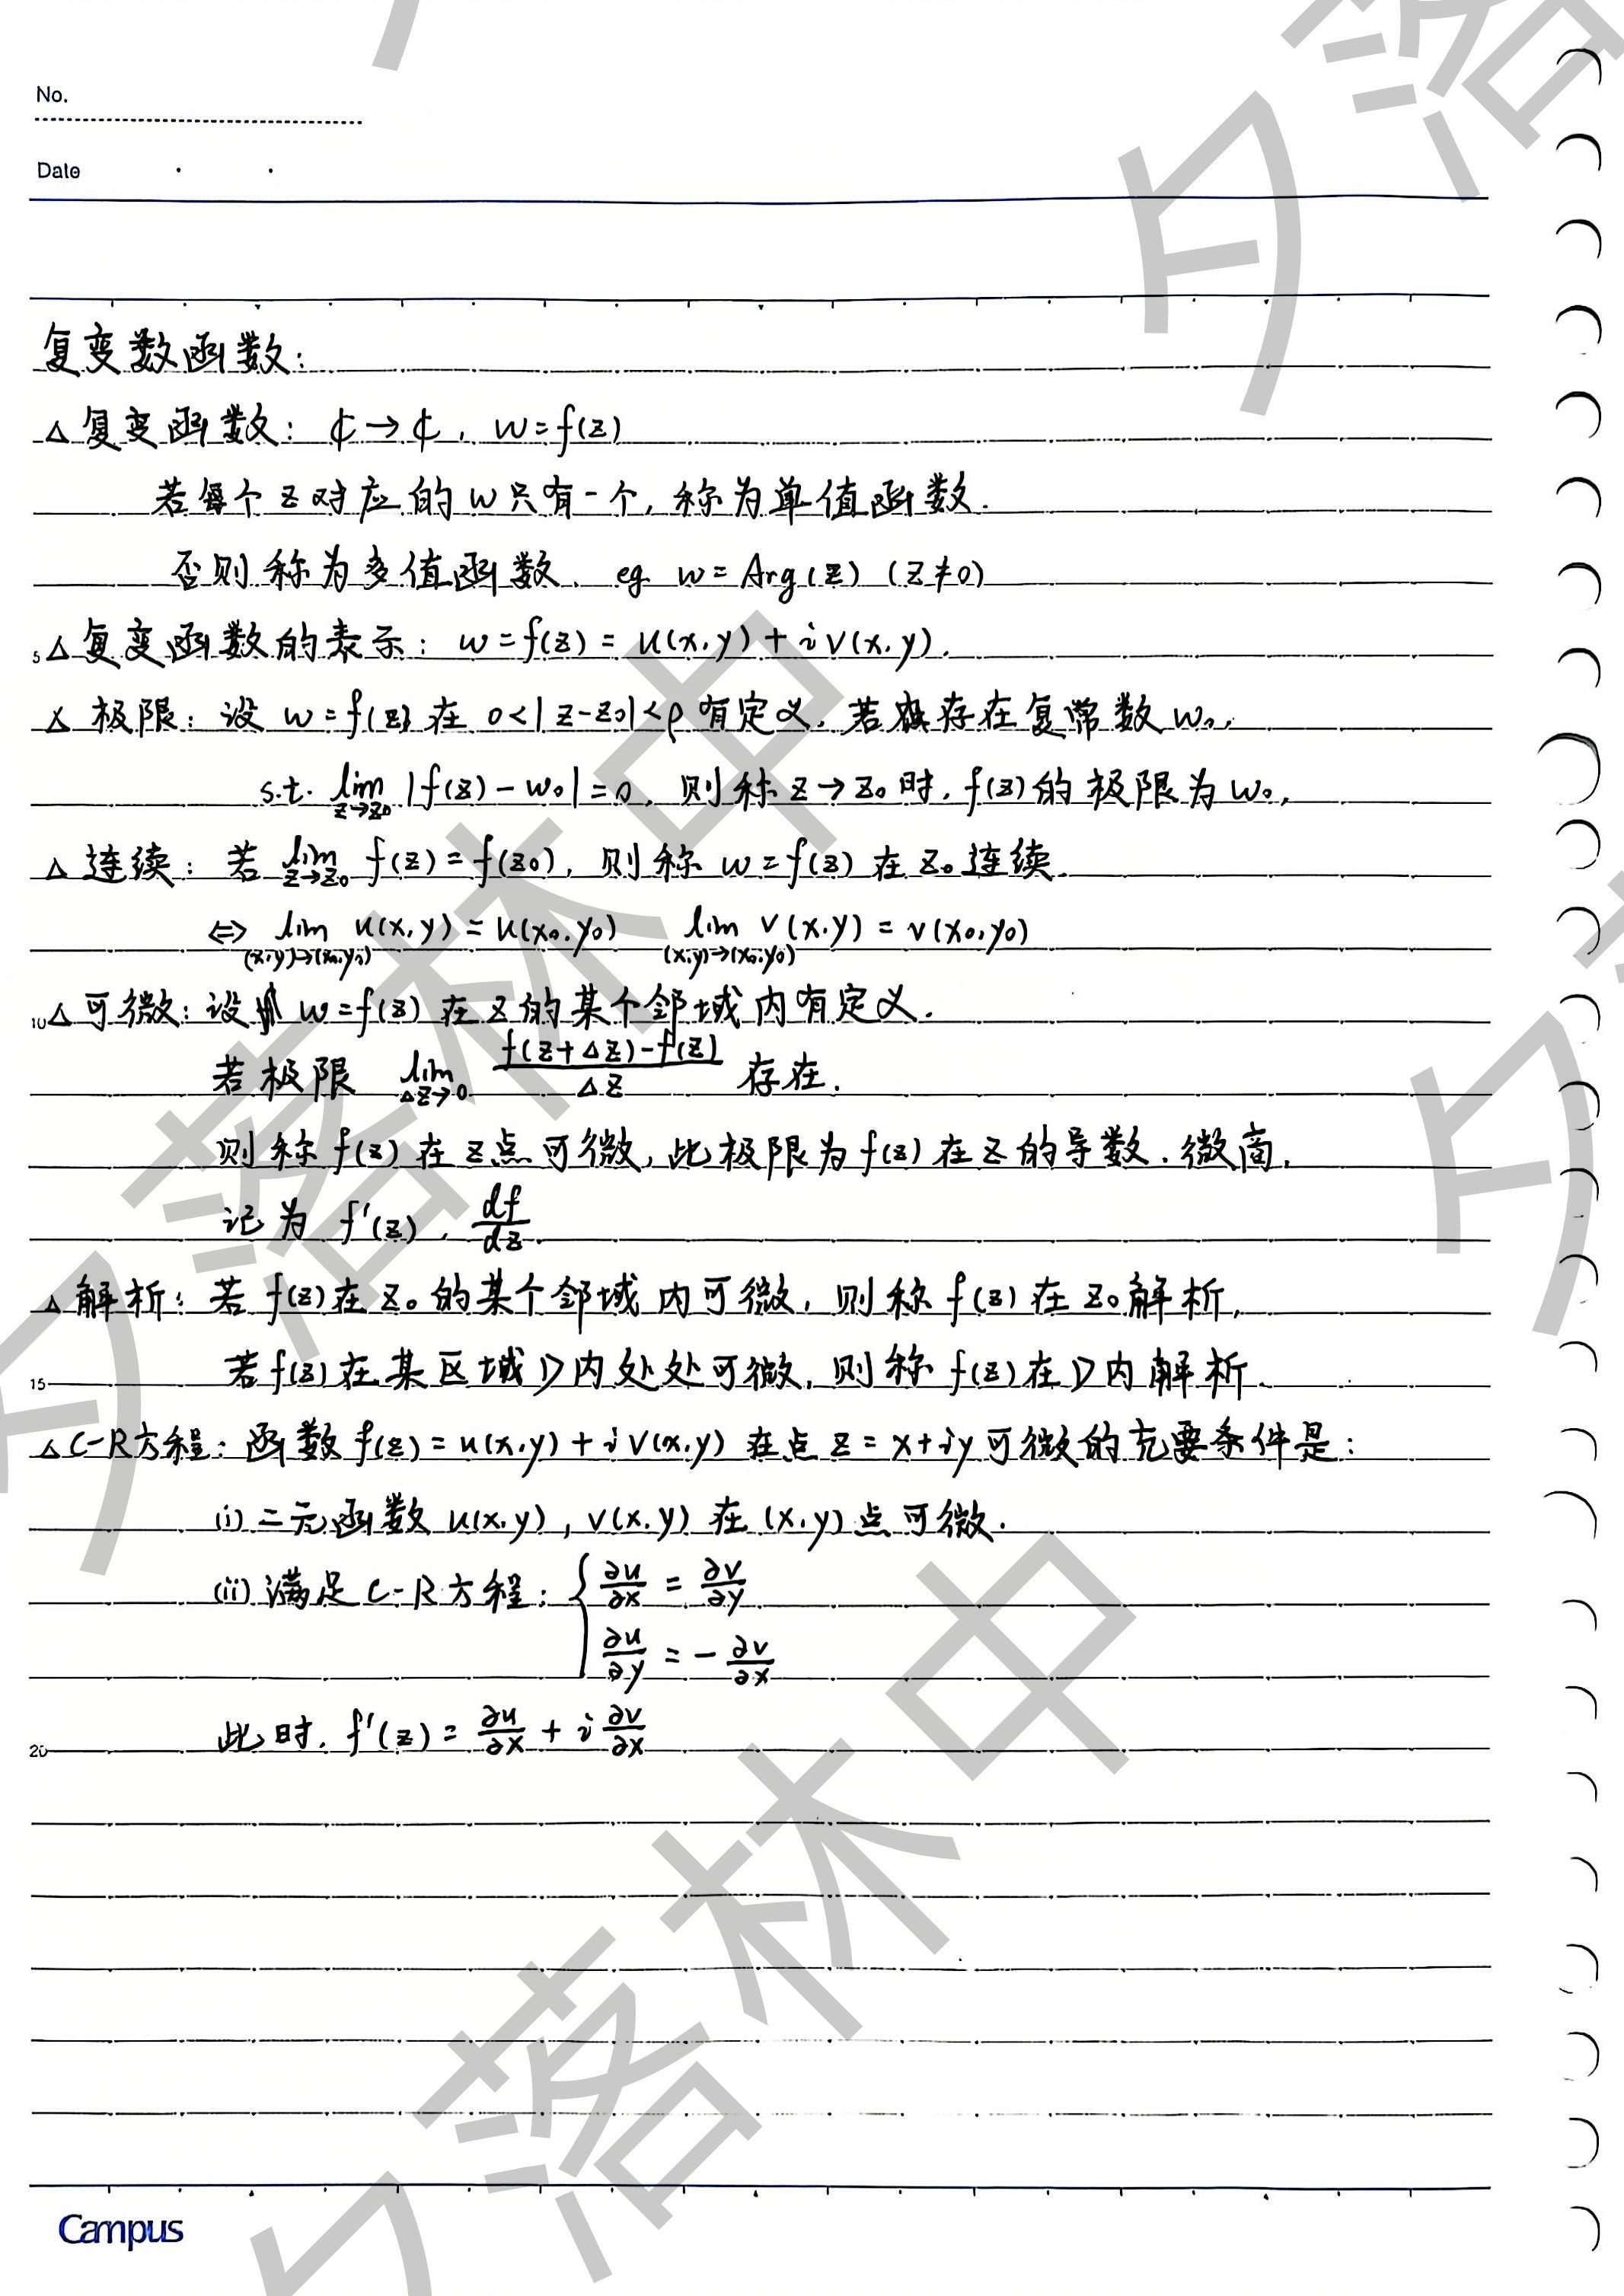 No.
Date
复变数函数:
△ 复变函数: ℂ→ℂ, w=f(z)
若每个 z 对应的 w 只有一个, 称为单值函数.
否则称为多值函数. eg. w=Arg(z) (z≠0)
5 △ 复变函数的表示: w=f(z)=u(x,y)+iv(x,y).
△ 极限: 设 w=f(z) 在 0<|z-z₀|<ρ 有定义, 若存在复常数 w₀,
s.t. lim_{z→z₀} |f(z)-w₀|=0, 则称 z→z₀ 时, f(z) 的极限为 w₀.
△ 连续: 若 lim_{z→z₀} f(z)=f(z₀), 则称 w=f(z) 在 z₀ 连续.
⇔ lim_{(x,y)→(x₀,y₀)} u(x,y)=u(x₀,y₀) lim_{(x,y)→(x₀,y₀)} v(x,y)=v(x₀,y₀)
10 △ 可微: 设 w=f(z) 在 z 的某个邻域内有定义.
若极限 lim_{△z→0} (f(z+△z)-f(z))/△z 存在.
则称 f(z) 在 z 点可微, 此极限为 f(z) 在 z 的导数. 微商.
记为 f'(z), df/dz.
△ 解析: 若 f(z) 在 z₀ 的某个邻域内可微, 则称 f(z) 在 z₀ 解析,
15 若 f(z) 在某区域 D 内处处可微, 则称 f(z) 在 D 内解析.
△ C-R方程: 函数 f(z)=u(x,y)+iv(x,y) 在点 z=x+iy 可微的充要条件是:
(i) 二元函数 u(x,y), v(x,y) 在 (x,y) 点可微.
(ii) 满足 C-R 方程: { ∂u/∂x = ∂v/∂y
∂u/∂y = - ∂v/∂x
20 此时, f'(z) = ∂u/∂x + i ∂v/∂x
Campus
夕落林中
夕落林中
夕落
夕落